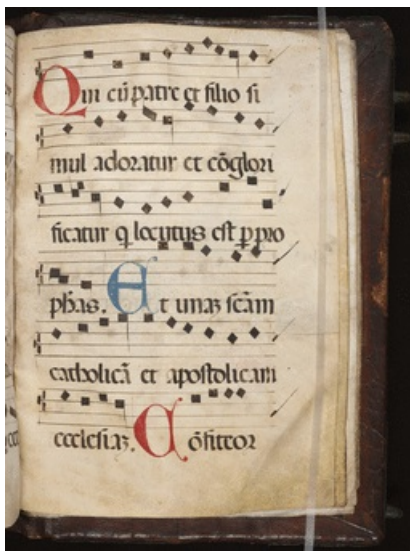 Qui cū patre et filio si
mul adoratur et cōglori
ficatur q locutus est p pro
phas. Et unaʒ scām
catholicā et apostolicam
ecclesiaʒ. Cōfiteor